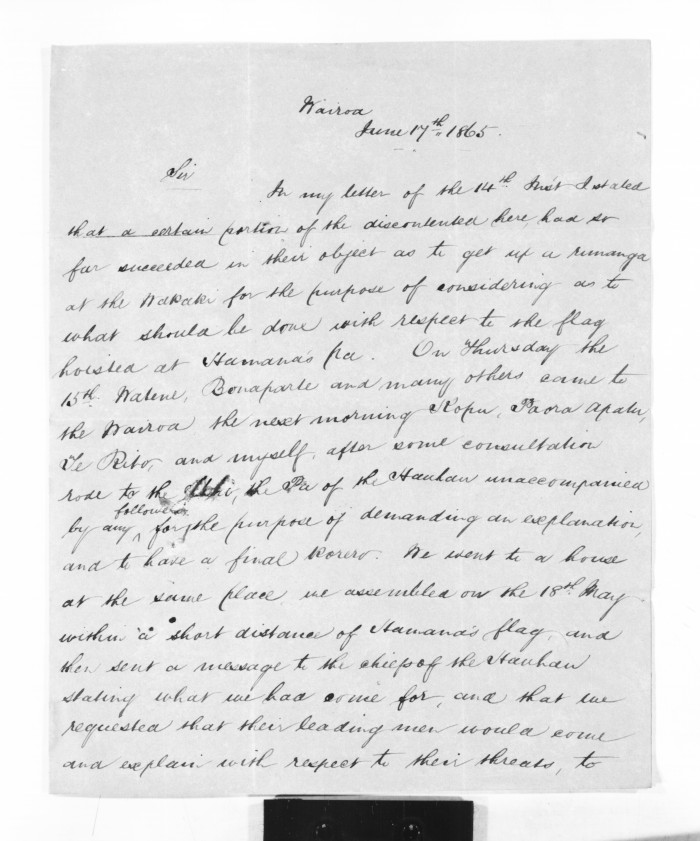 Wairoa
June 17th 1865.
Sir
In my letter of the 14th Inst I stated
that a certain portion of the discontented here, had so
far succeeded in their object as to get up a runanga
at the Wakaki for the purpose of considering as to
what should be done with respect to the flag
hoisted at Hamana's pa. On Thursday the
15th Watene, Bonaparte and many others came to
the Wairoa the next morning Kopu, Paora Apatu,
Te Rito, and myself, after some consultation
rode to the Uhi, the Pa of the Hauhau unaccompanied
by any followers, for the purpose of demanding an explanation,
and to have a final korero. We went to a house
at the same place we assembled on the 18th May
within a short distance of Hamana's flag, and
then sent a message to the chiefs of the Hauhau
stating what we had come for, and that we
requested that their leading men would come
and explain with respect to their threats, to